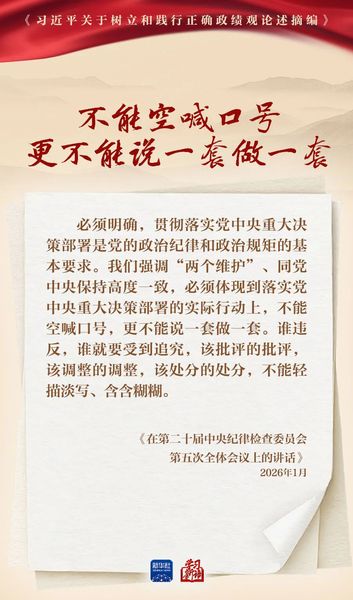 《习近平关于树立和践行正确政绩观论述摘编》
不能空喊口号
更不能说一套做一套
必须明确，贯彻落实党中央重大决
策部署是党的政治纪律和政治规矩的基
本要求。我们强调“两个维护”、同党
中央保持高度一致，必须体现到落实党
中央重大决策部署的实际行动上，不能
空喊口号，更不能说一套做一套。谁违
反，谁就要受到追究，该批评的批评，
该调整的调整，该处分的处分，不能轻
描淡写、含含糊糊。
《在第二十届中央纪律检查委员会
第五次全体会议上的讲话》
2026年1月
新华社